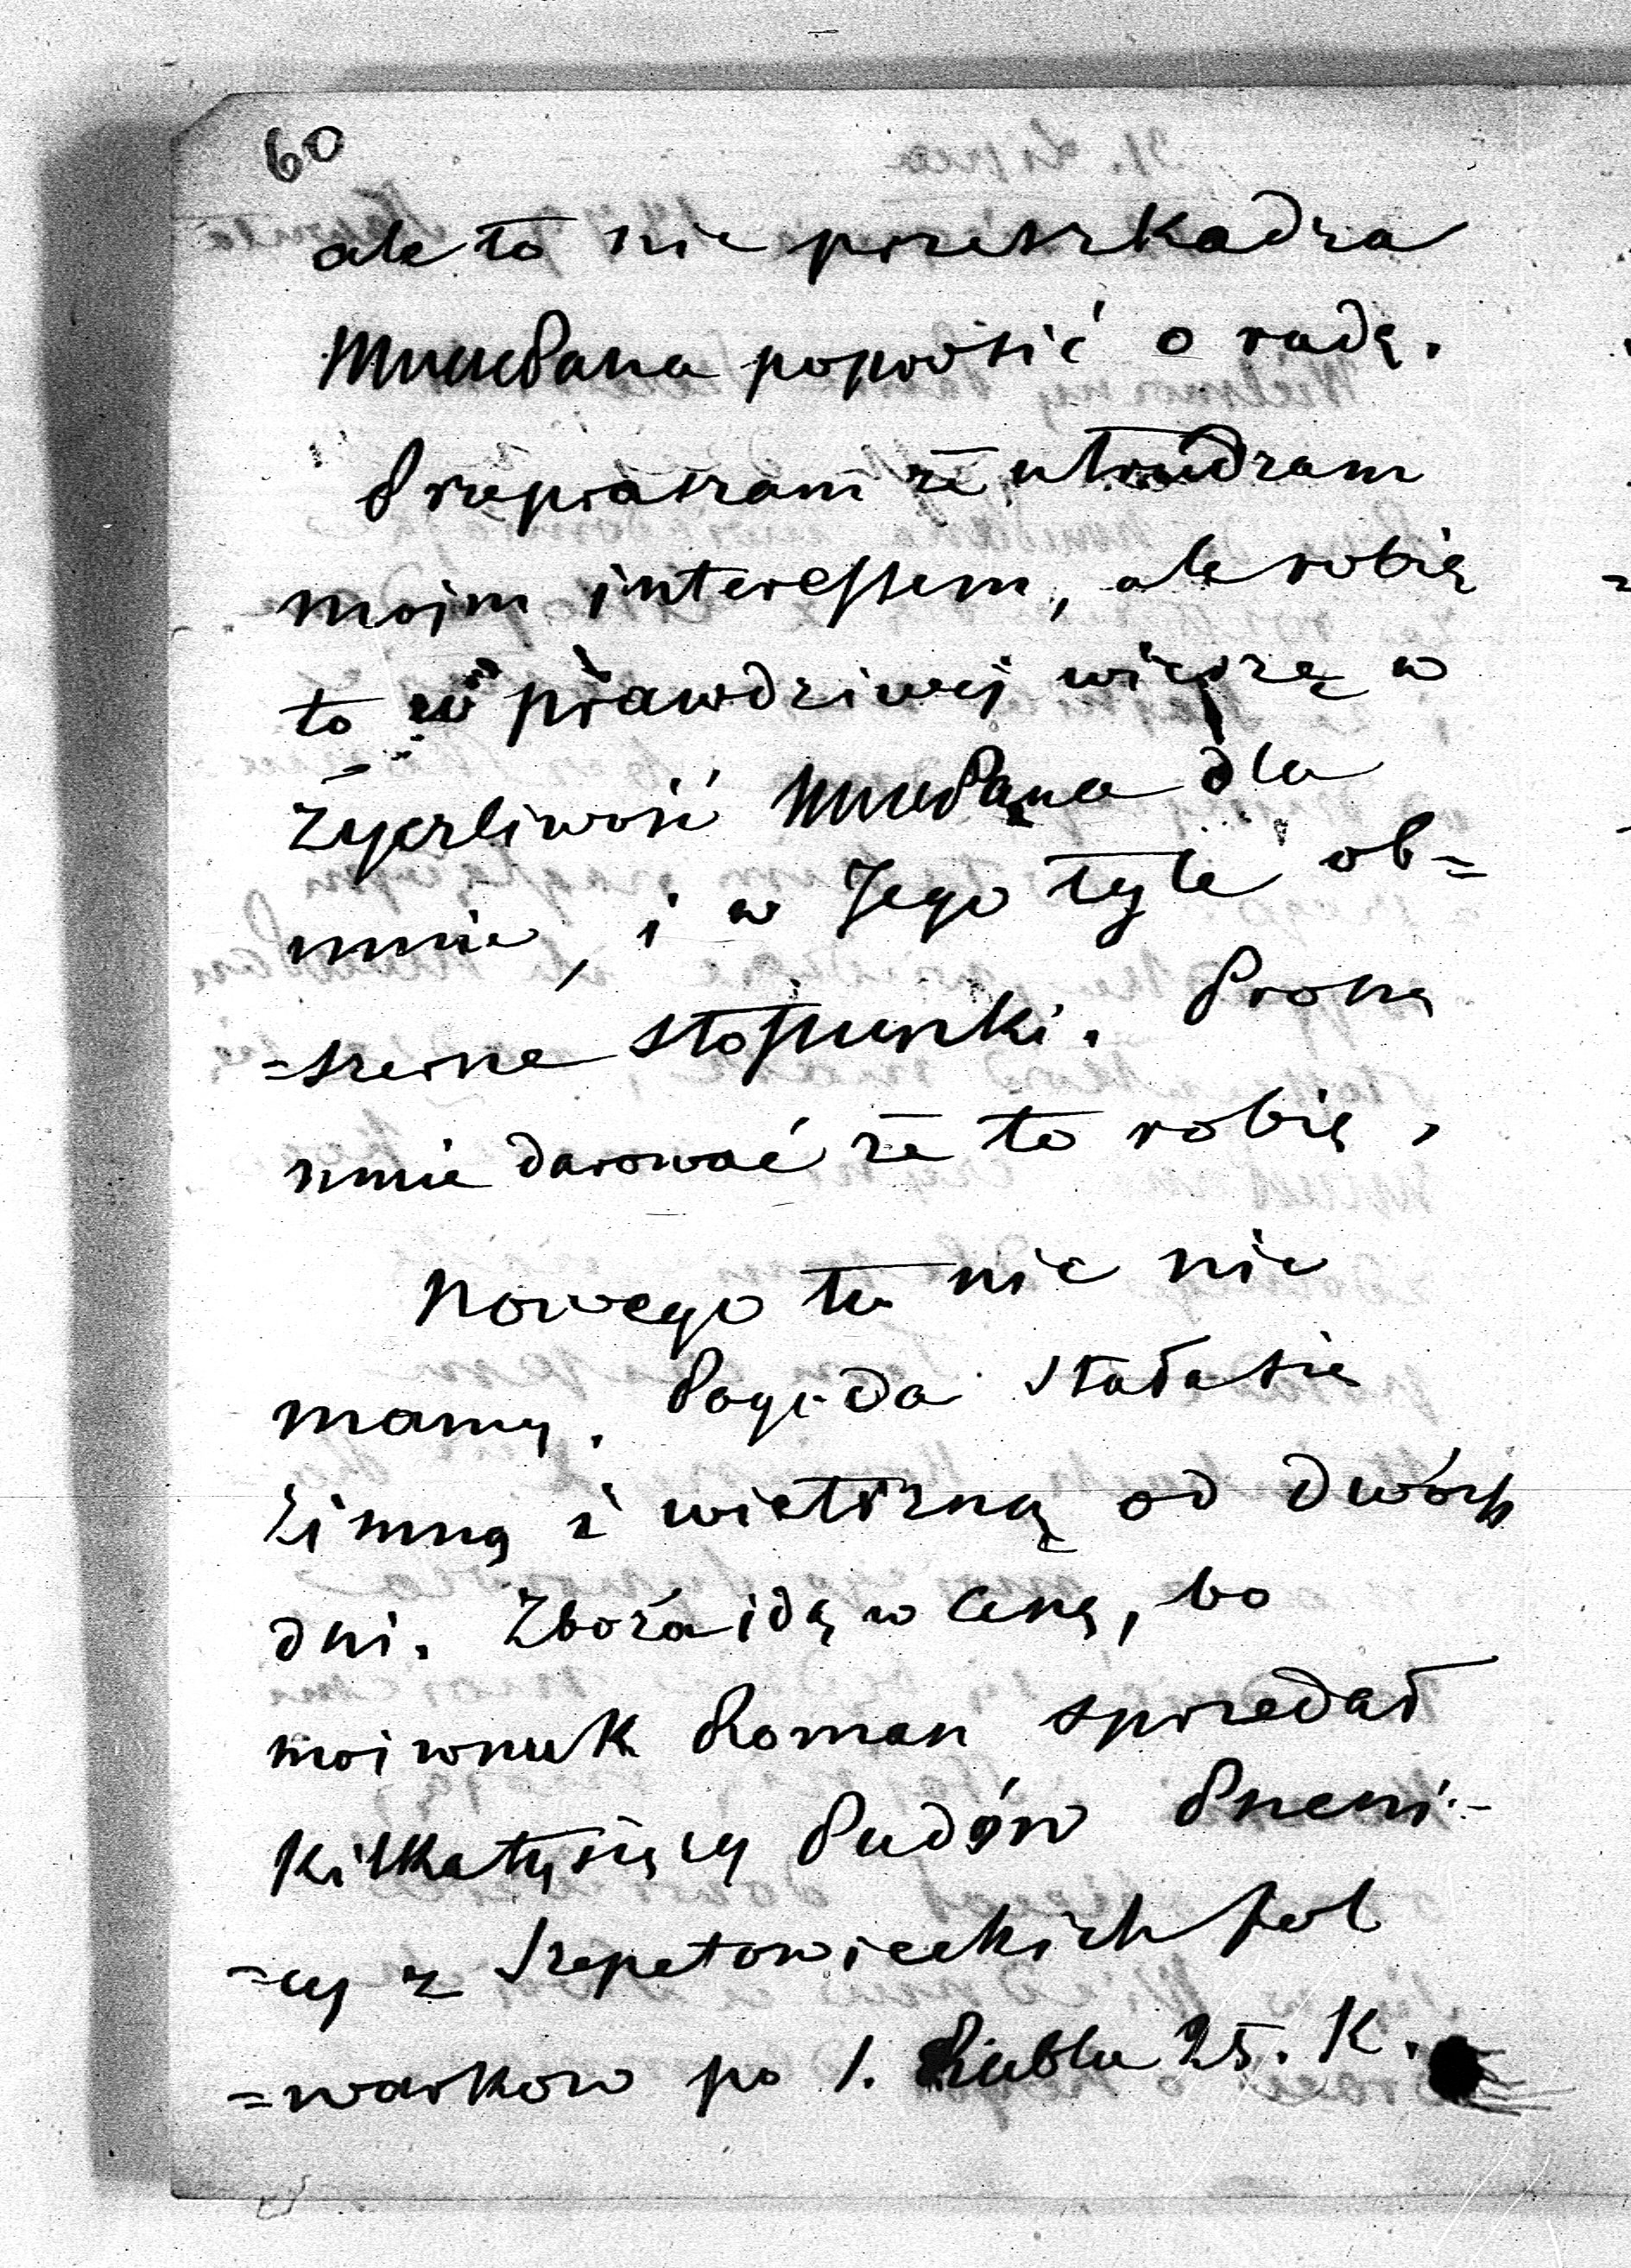 60
ale to nie przeszkadza
WmuuPana poprosić o radę.
Przepraszam że utrudzam
moim interessem, ale robię
to w prawdziwej wierze w
życzliwość WmuuPana dla
mnie, i w Jego tyle ob=
=szerne stossunki. Proszę
mnie darować że to robię,
Nowego tu nic nie
mamy. Pogoda stała się
zimną i wietrzną od dwóch
dni. Zboża idą w cenę, bo
moi wnuk Roman sprzedał
kilkatysięcy Pudów Pszeni-
=cy z Szepetowieckich fol
=warkow po 1. Rublu 25. K.